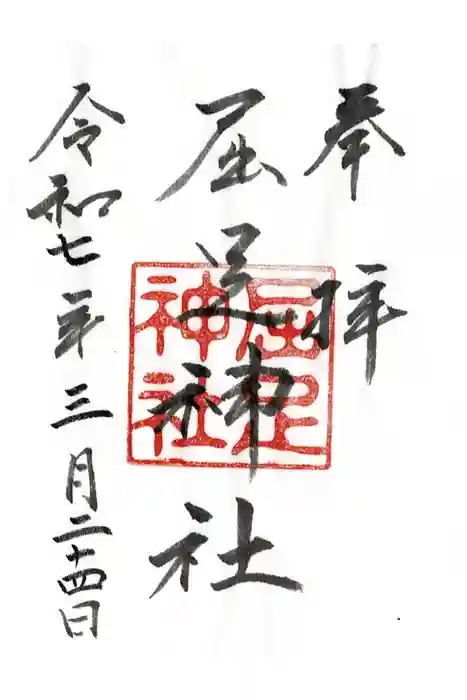 奉拝
屈足神社
令和七年三月二十四日
屈足
神社